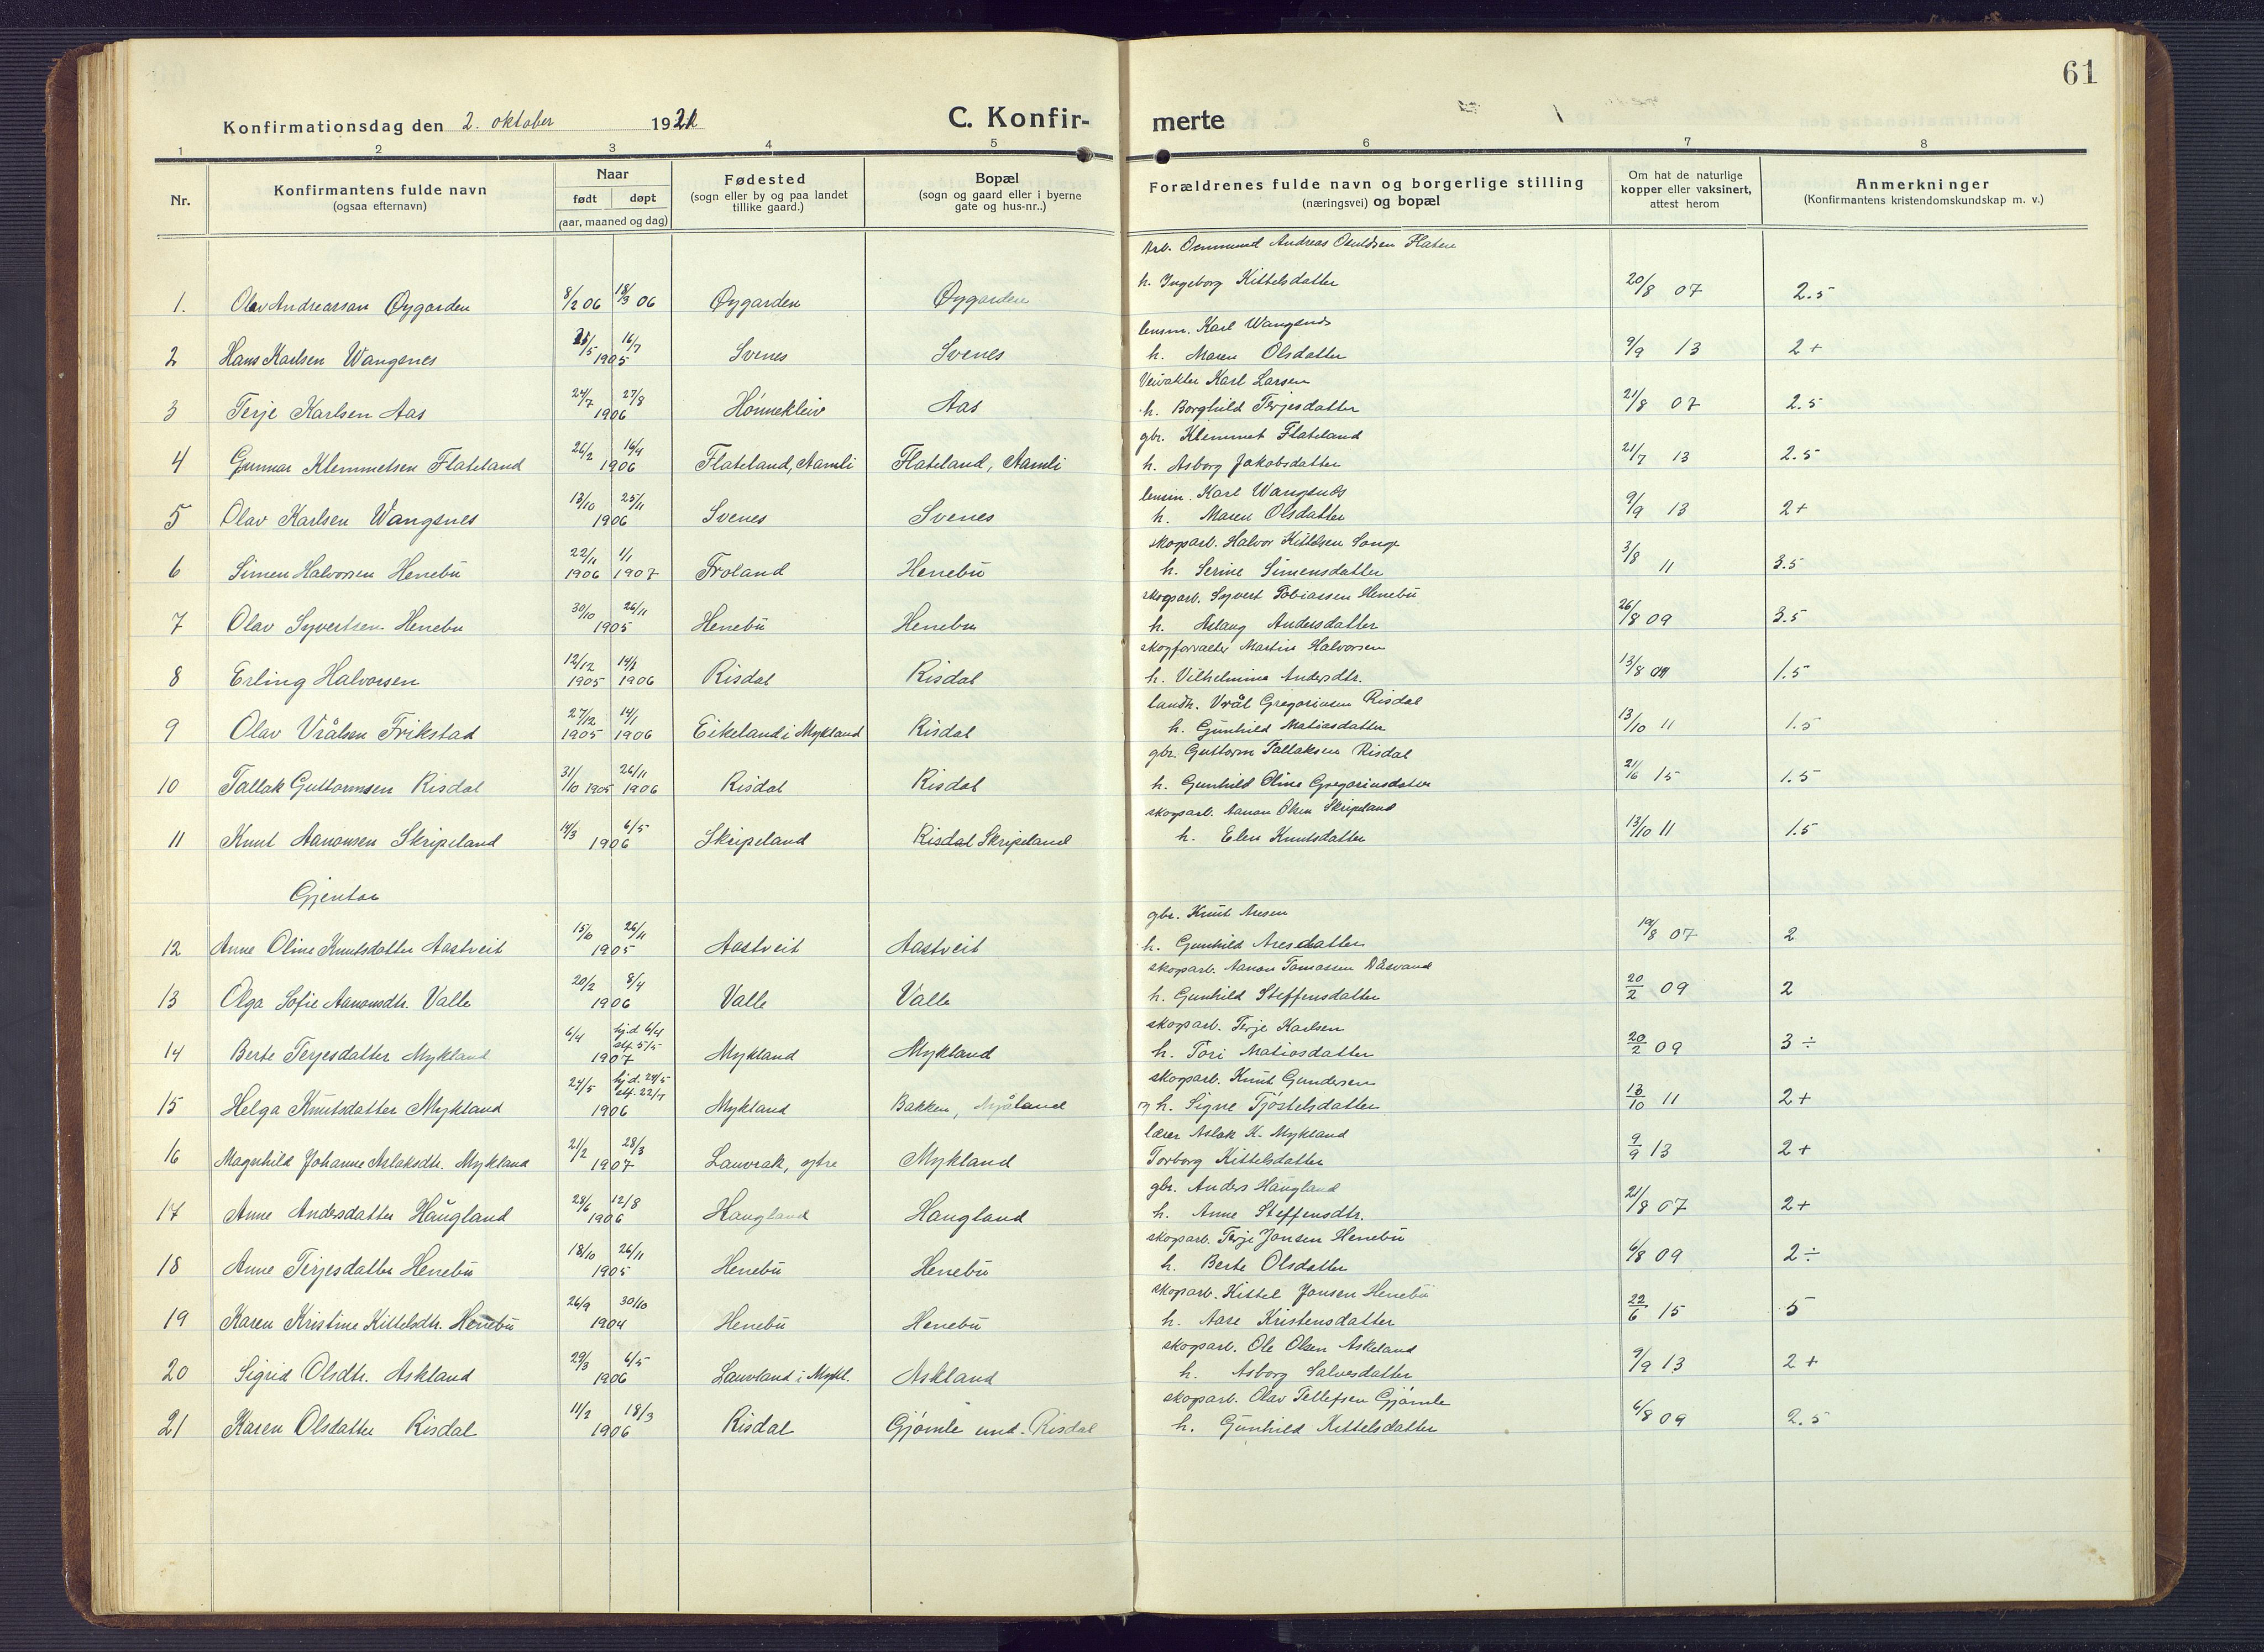 61
Konfirmationsdag den 2. oktober 1921
C. Konfir- merte
1 2 3 4 5 6 7 8
Nr.
Konfirmantens fulde navn
(ogsaa efternavn)
Naar
født døpt
(aar, maaned og dag)
Fødested
(sogn eller by og paa landet
tillike gaard.)
Bopæl
(sogn og gaard eller i byerne
gate og hus-nr..)
Forældrenes fulde navn og borgerlige stilling
(næringsvei) og bopæl
Om hat de naturlige
kopper eller vaksinert,
attest herom
Anmerkninger
(Konfirmantens kristendomskundskap m. v.)
Arb. Osmund Andreas Osuldsen Flaten
1. Olav Andreassan Øygarden 8/2 06 18/3 06 Øygarden Øygarden h. Ingeborg Kittelsdatter 20/8 07 2.5
lensm. Karl Wangsnes
2 Hans Karlsen Wangsnes 16/7 1905 Svenes Svenes h. Maren Olsdatter 9/9 13 2+
Veivakter Karl Larsen
3 Terje Karlsen Aas 24/7 27/8 1906 Hønnekleiv Aas h. Borghild Terjesdatter 21/8 07 2.5
gbr. Klemmet Flateland
4 Gunnar Klemmetsen Flateland 26/2 16/4 1906 Flateland, Aamli Flateland, Aamli h. Asborg Jakobsdatter 21/7 13 2.5
lensm. Karl Wangsnes
5 Olav Karlsen Wangsnes 13/10 25/11 1906 Svenes Svenes h. Maren Olsdatter 9/9 13 2+
skogarb. Halvor Kittelsen Songe
6 Simen Halvorsen Henebu 22/11 1906 1/1 1907 Froland Henebu h. Serine Simensdatter 3/8 11 3.5
skogarb. Syvert Tobiassen Henebu
7 Olav Syvertsen Henebu 30/10 26/11 1905 Henebu Henebu h. Aslaug Andersdatter 26/8 09 3.5
skogforvalter Martin Halvorsen
8 Erling Halvorsen 12/12 1905 14/1 1906 Risdal Risdal h. Vilhelmine Andersdtr. 13/8 1.5
landh. Vrål Gregoriusen Risdal
9 Olav Vrålsen Frikstad 27/12 1905 14/1 1906 Eikeland i Mykland Risdal h. Gunhild Matiasdatter 13/10 11 1.5
gbr. Guttorm Tallaksen Risdal
10 Tallak Guttormsen Risdal 31/10 1905 26/11 1906 Risdal Risdal h. Gunhild Oline Gregoriusdatter 21/6 15 1.5
skogarb. Aanon Olsen Skripeland
11 Knut Aanonsen Skripeland 14/3 6/5 1906 Skripeland Risdal Skripeland h. Elen Knutsdatter 13/10 11 1.5
Gjentar
gbr. Knut Aresen
12 Anne Oline Knutsdatter Aastveit 26/11 1905 Aastveit Aastveit h. Gunhild Aresdatter 19/8 07 2
skogarb. Aanon Tomassen Dåsvand
13 Olga Sofie Aanonsdtr. Valle 20/2 8/4 1906 Valle Valle h. Gunhild Steffensdatter 20/2 09 2
skogarb. Terje Karlsen
14 Berte Terjesdatter Mykland 6/4 hj.d. 6/4 stf. 5/5 1907 Mykland Mykland h. Tori Matiasdatter 20/2 09 3 ÷
skogarb. Knut Gundersen
15 Helga Knutsdatter Mykland 24/5 hj.d. 24/5 stf. 22/7 1906 Mykland Bakken, Mjåland h. Signe Tjøstelsdatter 13/10 11 2+
lærer Aslak K. Mykland
16 Magnhild Johanne Aslaksdtr. Mykland 21/2 28/3 1907 Lauvrak, ytre Mykland Torborg Kittelsdatter 9/9 13 2+
gbr. Anders Haugland
17 Anne Andersdatter Haugland 28/6 12/8 1906 Haugland Haugland h. Anne Steffensdtr. 21/8 07 2+
skogarb. Terje Jonsen Henebu
18 Anne Terjesdatter Henebu 18/10 26/11 1905 Henebu Henebu h. Berte Olsdatter 6/8 09 2÷
skogarb. Kittel Jonsen Henebu
19 Karen Kristine Kittelsdtr. Henebu 26/9 30/10 1904 Henebu Henebu h. Aase Kristensdatter 22/6 15 5
skogarb. Ole Olsen Askeland
20 Sigrid Olsdtr. Askland 29/3 6/5 1906 Lauvland i Mykl. Askland h. Asborg Salvesdatter 9/9 13 2+
skogarb. Olav Tellefsen Gjømle
21 Karen Olsdatter Risdal 11/2 18/3 1906 Risdal Gjømle und. Risdal h. Gunhild Kittelsdatter 6/8 09 2.5